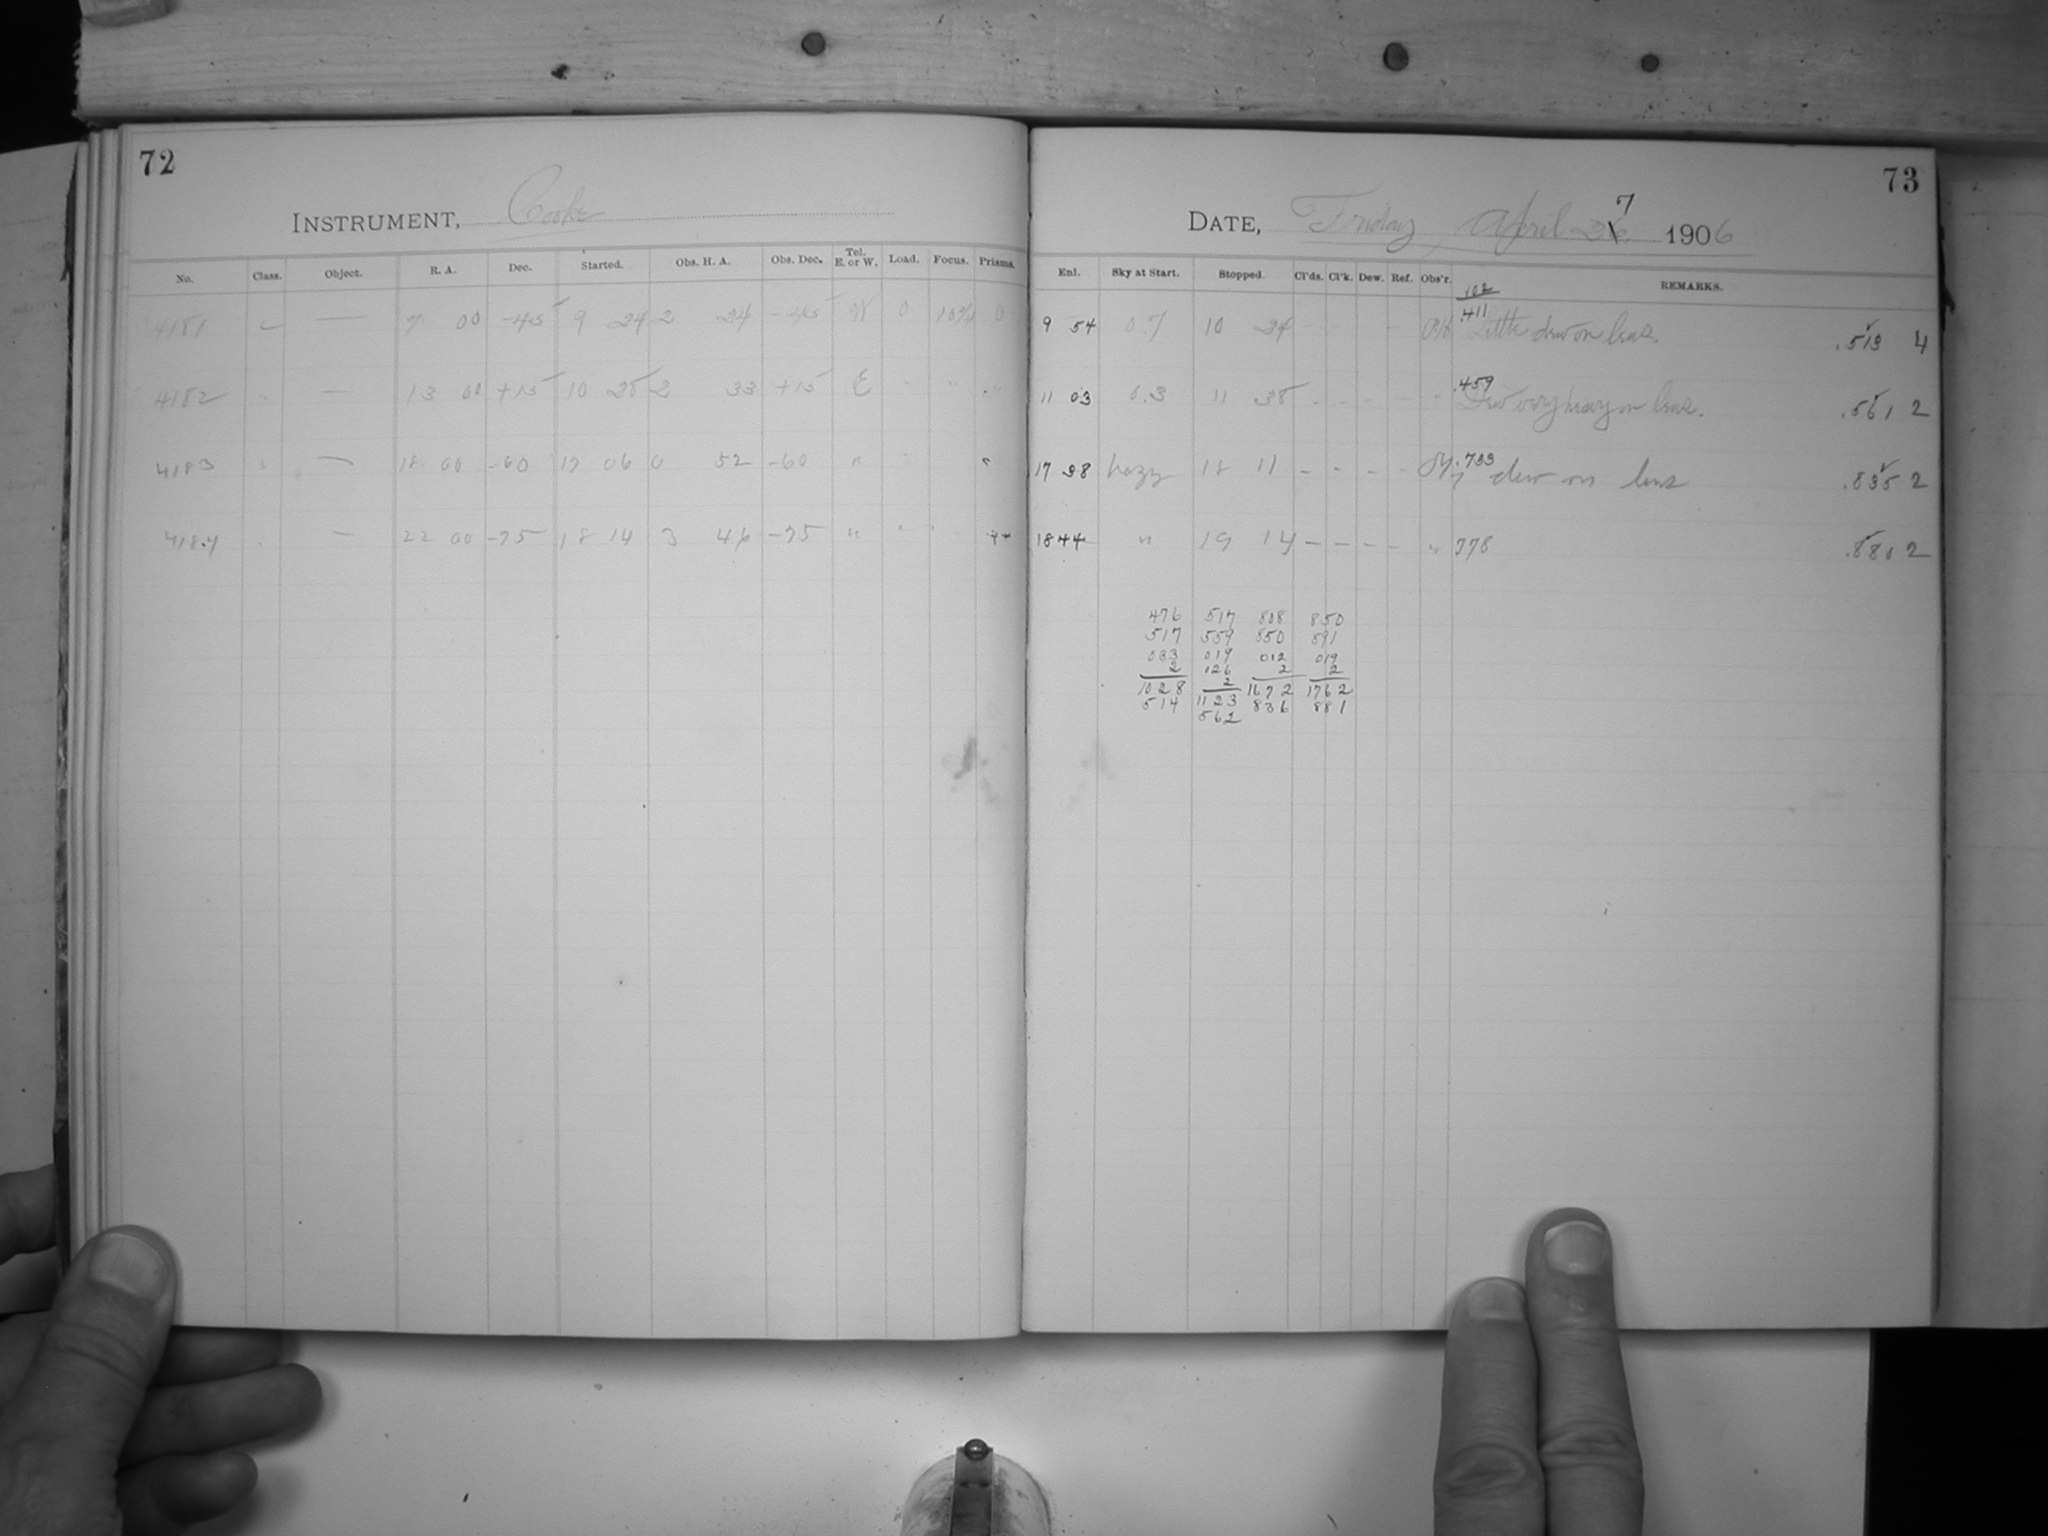 72
INSTRUMENT, Cooke
No. Class. Object. R. A. Dec. Started. Obs. H. A. Obs. Dec. Tel. E. or W. Load. Focus. Prisms.
4181 — 7 00 -45 9 24 2 24 -45 W 0 0
4182 — 13 00 +15 10 28 2 33 +15 E
4183 — 18 00 -60 17 06 0 52 -60 "
4184 — 22 00 -75 18 14 3 46 -75 "
73
DATE, Friday, April 27 1906
Enl. Sky at Start. Stopped. Cl'ds. Cl'k. Dew. Ref. Obs'r. REMARKS.
.102
9 54 0.7 10 24 - - - - .411 Little dew on lens. .513 4
11 03 0.3 11 38 - - - - " .459 Dew very heavy on lens. .561 2
17 38 hazy 18 11 - - - - .733 dew on lens .835 2
18 44 " 19 14 - - - - " 778 .880 2
476 517 808 850
517 559 850 891
033 019 012 019
2 126 2 2
1028 2 1672 1762
514 1123 836 881
562